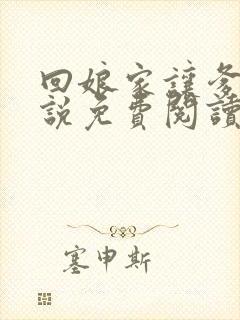 回娘家讓爹
說免費閱讀
塞申斯